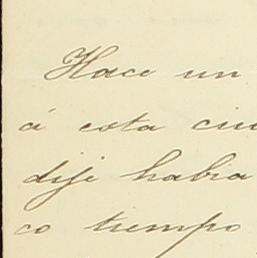 Hace un
á esta ciu
dije habia
co tiempo